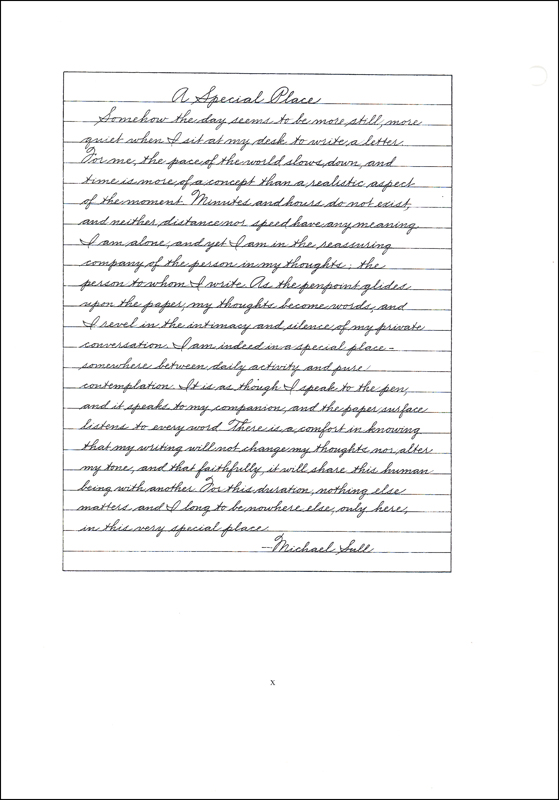 A Special Place
Somehow the day seems to be more still, more
quiet when I sit at my desk to write a letter.
For me, the pace of the world slows down, and
time is more of a concept than a realistic aspect
of the moment. Minutes and hours do not exist,
and neither distance nor speed have any meaning.
I am alone, and yet I am in the reassuring
company of the person in my thoughts: the
person to whom I write. As the penpoint glides
upon the paper, my thoughts become words, and
I revel in the intimacy and silence of my private
conversation. I am indeed in a special place –
somewhere between daily activity and pure
contemplation. It is as though I speak to the pen,
and it speaks to my companion, and the paper surface
listens to every word. There is a comfort in knowing
that my writing will not change my thoughts nor alter
my tone, and that faithfully, it will share this human
being with another. For this duration, nothing else
matters and I long to be nowhere else, only here,
in this very special place.
–Michael Sull
x